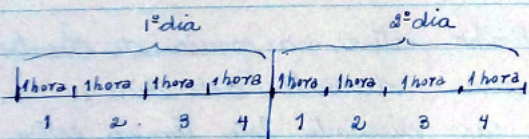 1º dia 2º dia
1 hora 1 hora 1 hora 1 hora 1 hora 1 hora 1 hora 1 hora
1 2. 3 4 1 2 3 4